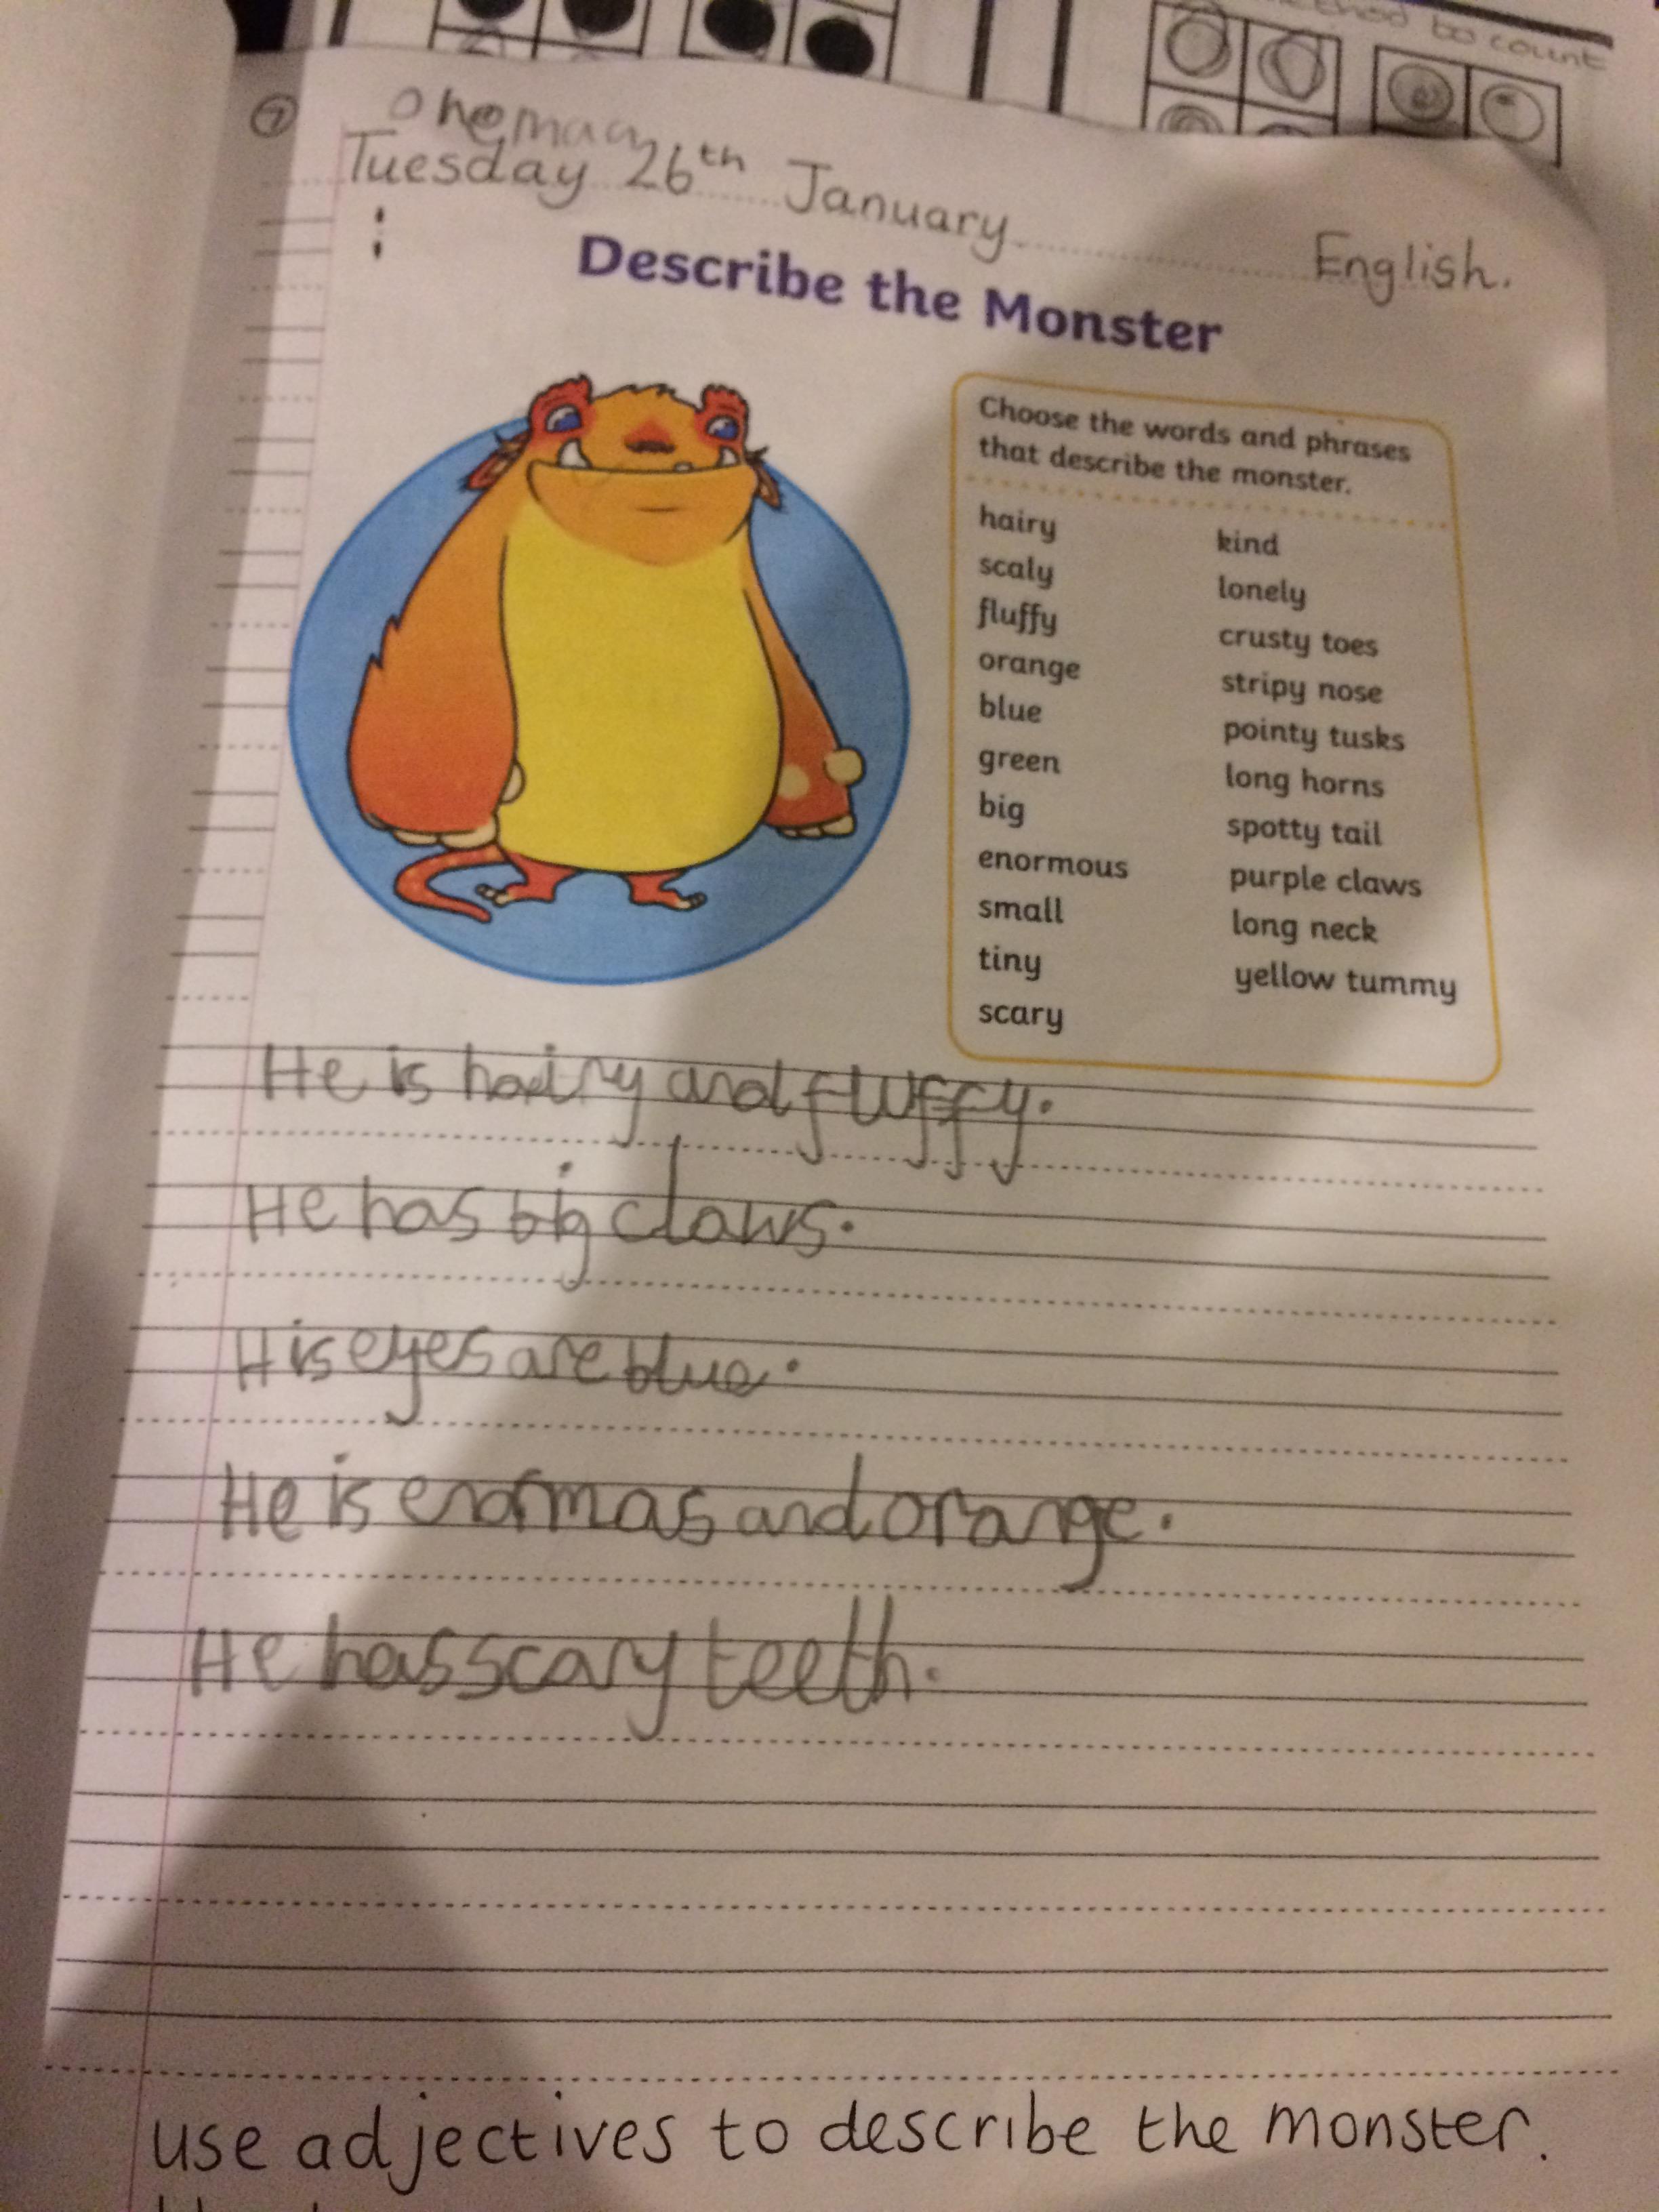 ethod to count
7
Tuesday 26th January
English.
Describe the Monster
Choose the words and phrases
that describe the monster.
hairy
scaly
fluffy
orange
blue
green
big
enormous
small
tiny
scary
kind
lonely
crusty toes
stripy nose
pointy tusks
long horns
spotty tail
purple claws
long neck
yellow tummy
He is hairy and fluffy.
He has big claws.
His eyes are blue.
He is enormas and orange.
He has scary teeth.
use adjectives to describe the monster.